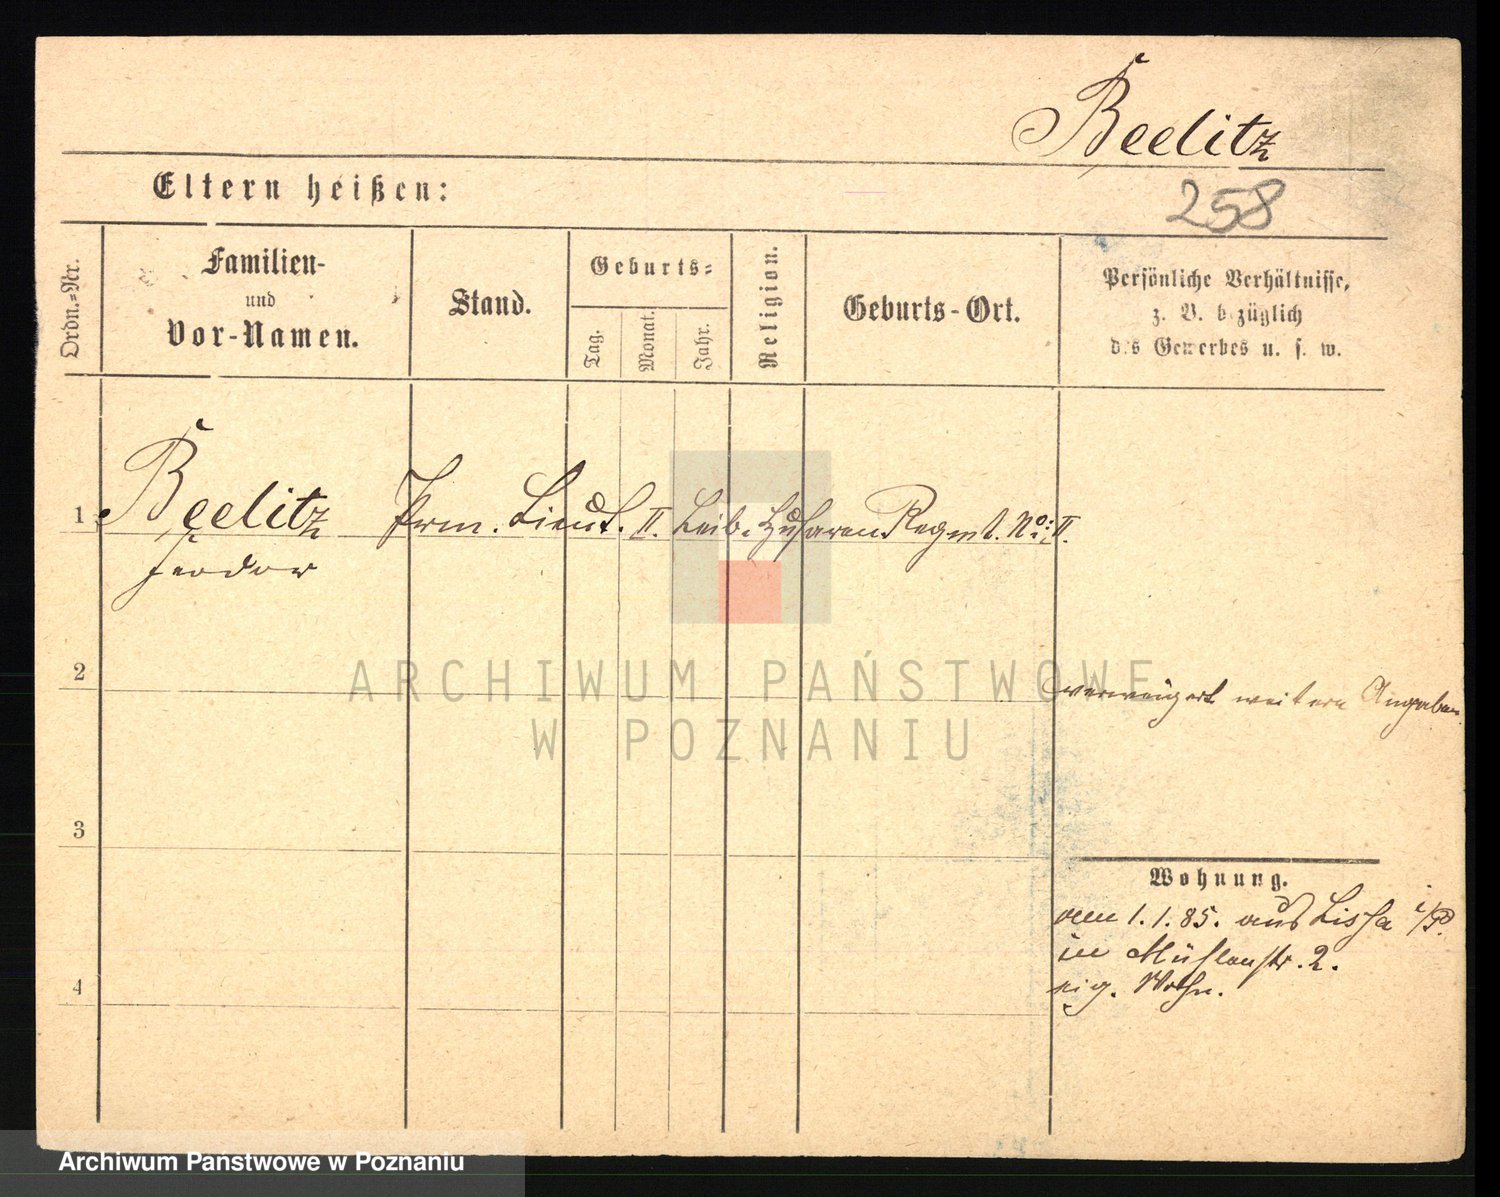 Beelitz
Eltern heißen:
258
Ordn.-Nr.
Familien-
und
Vor-Namen.
Stand.
Geburts-
Tag.
Monat.
Jahr.
Religion.
Geburts-Ort.
Persönliche Verhältnisse,
z. B. bezüglich
des Gewerbes u. s. w.
1
Beelitz
Feodor
Prm. Lieut. II. Leib. Husaren Regmt. No: II.
2
verweigert weitere Angaben
3
4
Wohnung.
vom 1.1.85. aus Lissa i/P.
in Mühlenstr. 2.
eig. Wohn.
ARCHIWUM PAŃSTWOWE
W POZNANIU
Archiwum Państwowe w Poznaniu